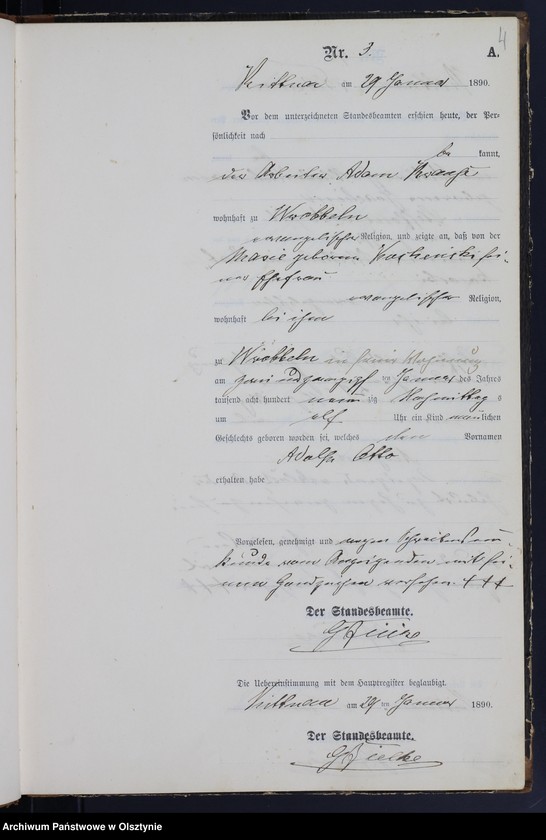 4
Nr. 3. A.
am 29 Januar 1890.
Vor dem unterzeichneten Standesbeamten erschien heute, der Per-
sönlichkeit nach
be kannt,
der Arbeiter Adam
wohnhaft zu Wröbbeln
evangelischer Religion, und zeigte an, daß von der
Marie geborene sei-
ner Ehefrau
evangelischer Religion,
wohnhaft bei ihm
zu Wröbbeln in seiner Wohnung
am ten Januar des Jahres
tausend acht hundert neun zig Nachmittag s
um elf Uhr ein Kind männlichen
Geschlechts geboren worden sei, welches den Vornamen
Adolf Otto
erhalten habe
Vorgelesen, genehmigt und wegen Schreibensun-
kunde vom Anzeigenden mit sei-
nem Handzeichen versehen +++
Der Standesbeamte.
Die Uebereinstimmung mit dem Hauptregister beglaubigt.
am 29 ten Januar 1890.
Der Standesbeamte.
Archiwum Państwowe w Olsztynie